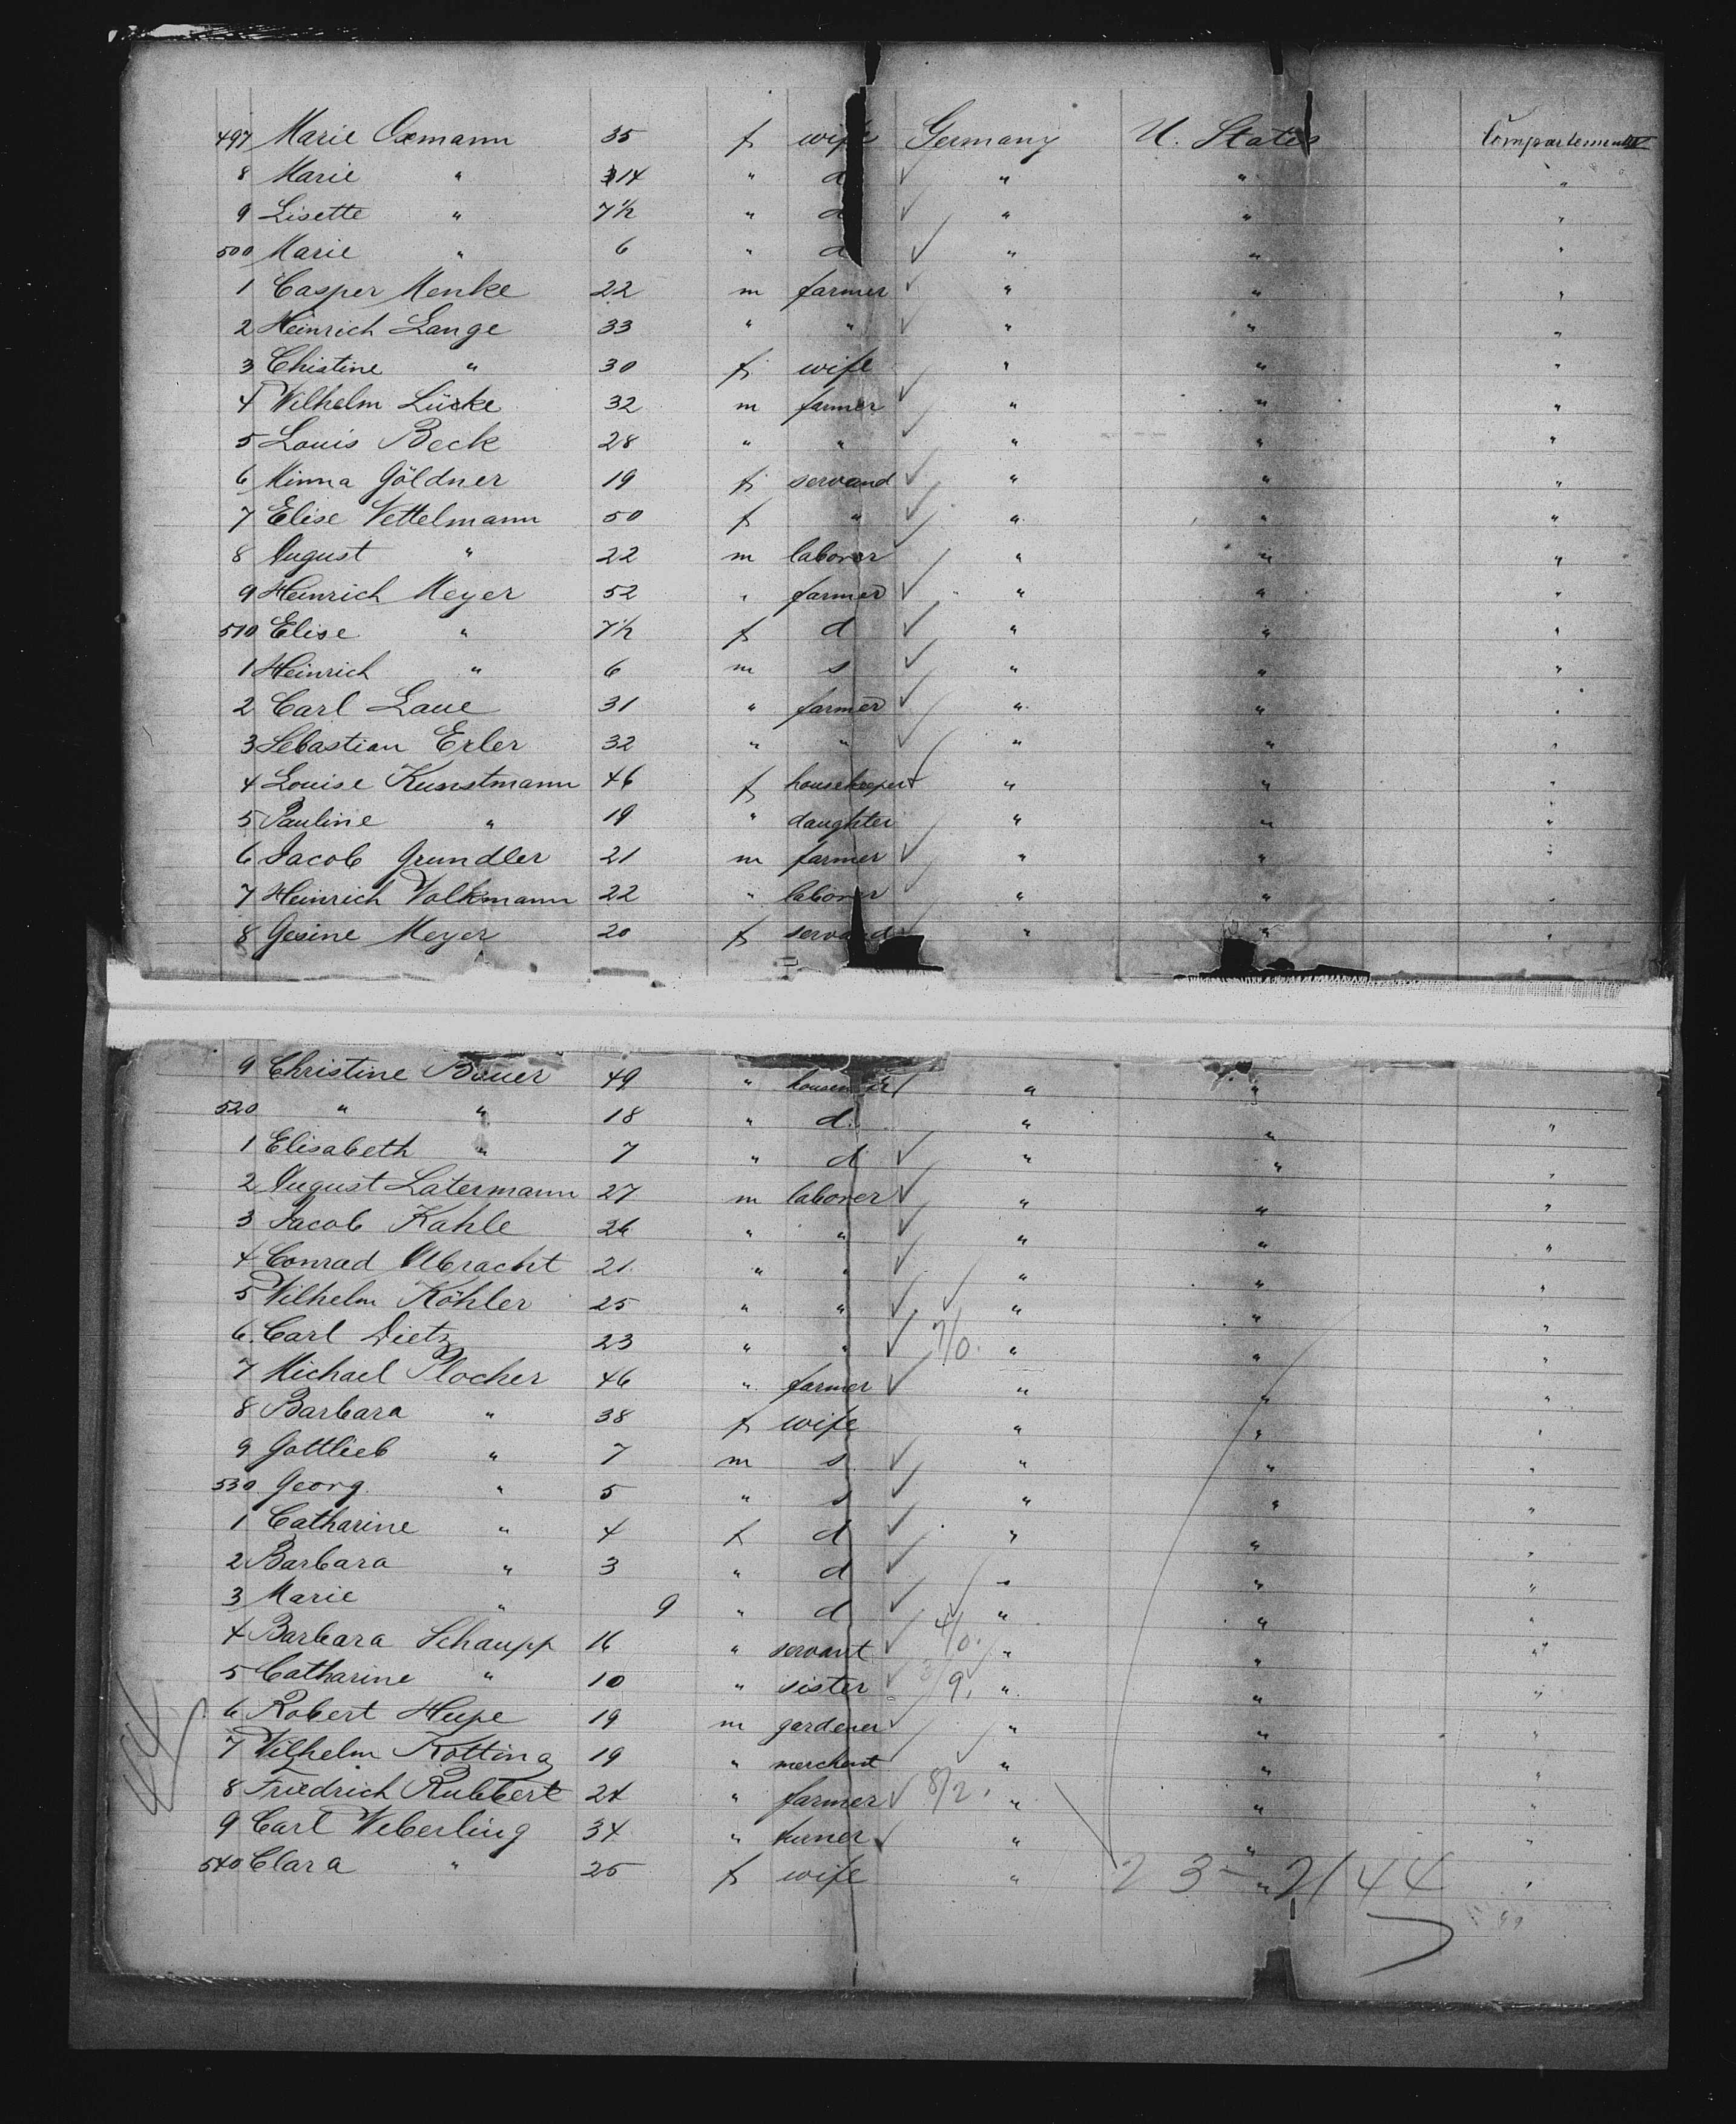 497 Marie Oxmann 35 f wife Germany U. States Compartement
8 Marie " 14 " d ✓ " " "
9 Lisette " 7 1/2 " d ✓ " " "
500 Marie " 6 " d ✓ " " "
1 Casper Menke 22 m farmer ✓ " " "
2 Heinrich Lange 33 " " ✓ " " "
3 Chistine " 30 f wife " " "
4 Wilhelm Lücke 32 m farmer ✓ " " "
5 Louis Beck 28 " " ✓ " " "
6 Minna Göldner 19 f servand ✓ " " "
7 Elise Vettelmann 50 f " ✓ " " "
8 August " 22 m laborer ✓ " " "
9 Heinrich Meyer 52 " farmer ✓ " " "
510 Elise " 7 1/2 f d ✓ " " "
1 Heinrich " 6 m s ✓ " " "
2 Carl Laue 31 " farmer ✓ " " "
3 Sebastian Erler 32 " " ✓ " " "
4 Louise Kunstmann 46 f housekeeper ✓ " " "
5 Pauline " 19 " daughter " " "
6 Jacob Grundler 21 m farmer ✓ " " "
7 Heinrich Volkmann 22 " laborer ✓ " " "
8 Gesine Meyer 20 f servand ✓ " " "
9 Christine Bauer 49 " ✓ " "
520 " " 18 " d. " " "
1 Elisabeth " 7 " d ✓ " " "
2 August Latermann 27 m laborer ✓ " " "
3 Jacob Kahle 26 " " ✓ " " "
4 Conrad Albracht 21 " " ✓ " " "
5 Wilhelm Köhler 25 " " ✓ ✓ " " "
6 Carl Dietz 23 " " ✓ 7/0. " " "
7 Michael Plocher 46 " farmer ✓ " " "
8 Barbara " 38 f wife " " "
9 Gottlieb " 7 m s ✓ " " "
530 Georg " 5 " s ✓ " " "
1 Catharine " 4 f d ✓ " " "
2 Barbara " 3 " d ✓ " " "
3 Marie " 9 " d ✓ ✓ " " "
4 Barbara Schaupp 16 " servant ✓ 4/0. " " "
5 Catharine " 10 " sister ✓ " " "
6 Robert Hupe 19 m gardener ✓ " " "
7 Wilhelm Kotting 19 " merchent ✓ ✓ " " "
8 Friedrich Rubbert 24 " farmer ✓ 8/2. " " "
9 Carl Weberling 34 " turner ✓ " " "
540 Clara " 25 f wife " " "